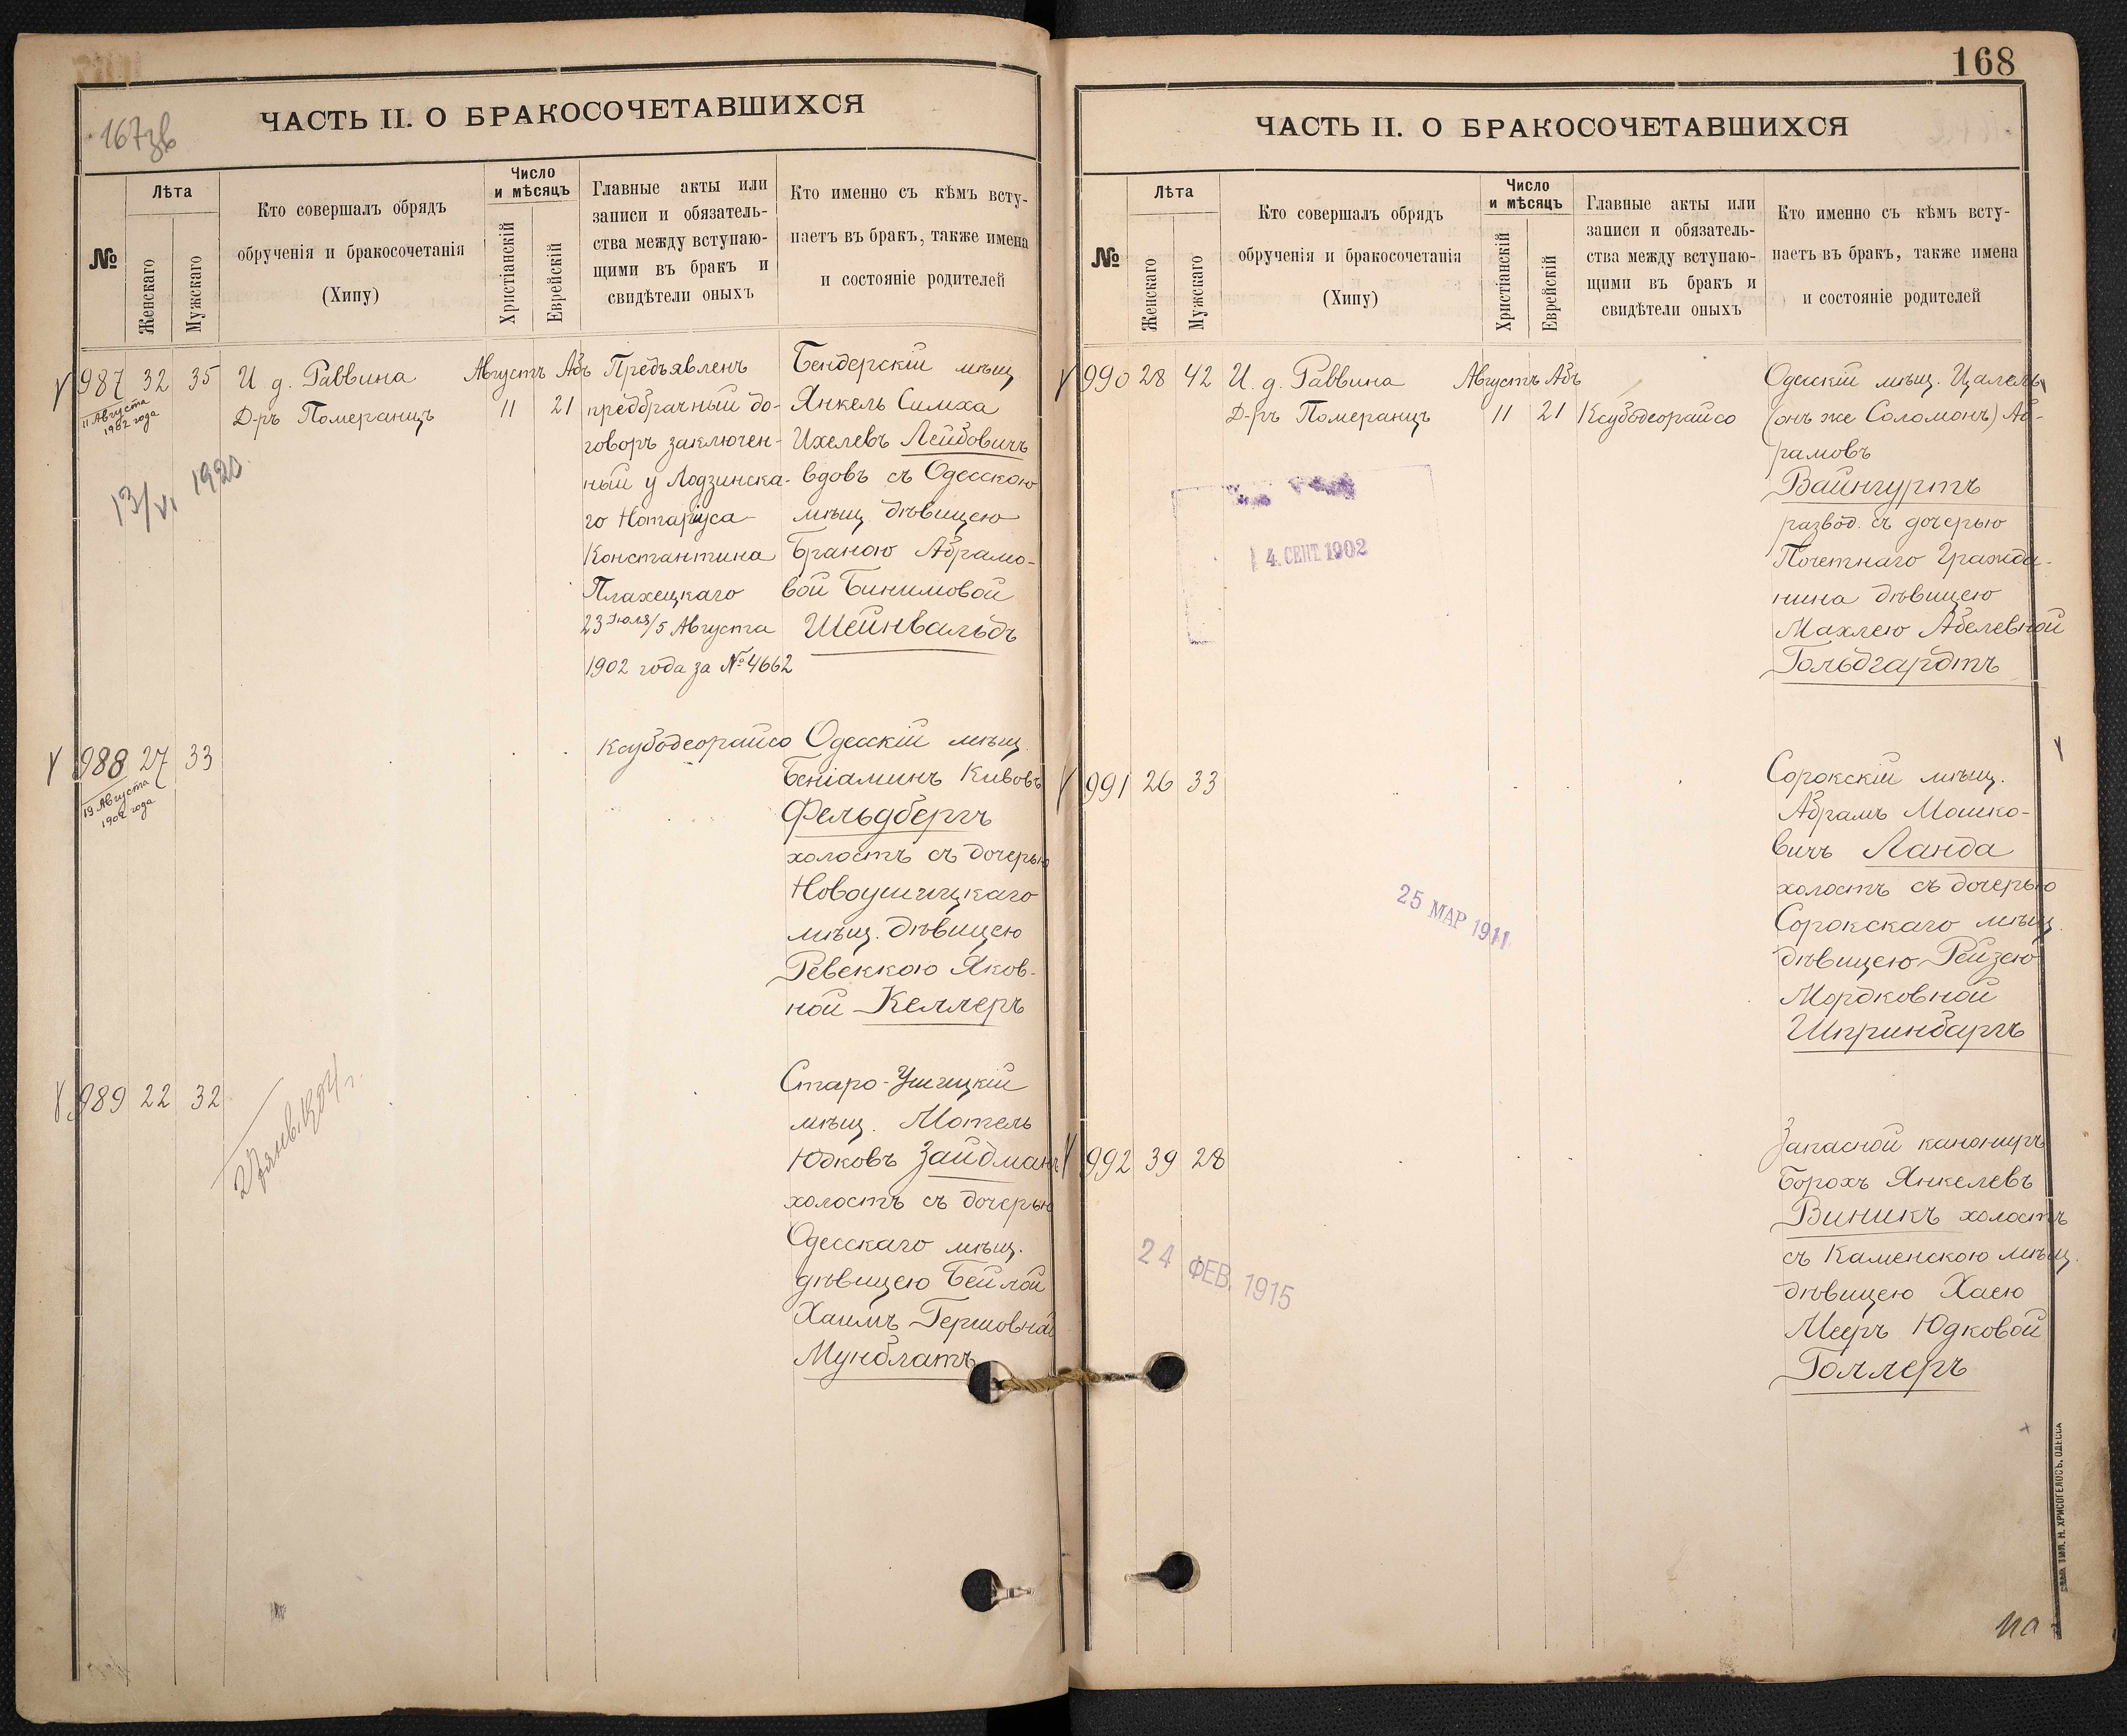 167зв
ЧАСТЬ II. О БРАКОСОЧЕТАВШИХСЯ
№
Лѣта
Женскаго
Мужскаго
Кто совершалъ обрядъ
обрученія и бракосочетанія
(Хипу)
Число
и мѣсяцъ
Христіанскій
Еврейскій
Главные акты или
записи и обязатель-
ства между вступаю-
щими въ бракъ и
свидѣтели оныхъ
Кто именно съ кѣмъ всту-
паетъ въ бракъ, также имена
и состояніе родителей
987 32 35
11 Августа
1902 года
И д. Раввина
Д-ръ Померанцъ
Августъ Абъ
11 21
Предъявленъ
предбрачный до-
говоръ заключен-
ный у Лодзинска-
го Нотаріуса
Константина
Плахецкаго
23 Іюля/5 Августа
1902 года за № 4662
Бендерскій мѣщ
Янкель Симха
Ихелевъ Лейбовичъ
вдовъ съ Одесскою
мѣщ дѣвицею
Браною Абрамо-
вой Бинимовой
Шейнвальдъ
13/VI 1920
988 27 33
19 Августа
1902 года
Ксубодеорайсо
Одесскій мѣщ.
Беніаминъ Кивовъ
Фельдбергъ
холостъ съ дочерью
Новоушицкаго
мѣщ. дѣвицею
Ревеккою Яков-
ной Келлеръ
989 22 32
27 янв. 1904 г.
Старо-Ушицкій
мѣщ. Мотель
Юдковъ Зайдманъ
холостъ съ дочерью
Одесскаго мѣщ.
дѣвицею Бейлой
Хаимъ Гершовной
Мунблатъ
168
ЧАСТЬ II. О БРАКОСОЧЕТАВШИХСЯ
№
Лѣта
Женскаго
Мужскаго
Кто совершалъ обрядъ
обрученія и бракосочетанія
(Хипу)
Число
и мѣсяцъ
Христіанскій
Еврейскій
Главные акты или
записи и обязатель-
ства между вступаю-
щими въ бракъ и
свидѣтели оныхъ
Кто именно съ кѣмъ всту-
паетъ въ бракъ, также имена
и состояніе родителей
990 28 42
И. д. Раввина
Д-ръ Померанцъ
Августъ Абъ
11 21
Ксубодеорайсо
Одесскій мѣщ. Цалель
(онъ же Соломонъ) Аб-
рамовъ
Вайнгуртъ
развод. съ дочерью
Почетнаго Гражда-
нина дѣвицею
Махлею Абелевной
Гольдгардтъ
4. СЕНТ. 1902
991 26 33
Сорокскій мѣщ.
Абрамъ Мошко-
вичъ Ланда
холостъ съ дочерью
Сорокскаго мѣщ.
дѣвицею Рейзею
Мордковной
Шпринбаргъ
25 МАР 1911
992 39 28
Запасной канониръ
Борохъ Янкелевъ
Виникъ холостъ
съ Каменскою мѣщ.
дѣвицею Хаею
Мееръ Юдковой
Голлеръ
24 ФЕВ. 1915
ТИП. Н. ХРИСОГЕЛОСЪ, ОДЕССА